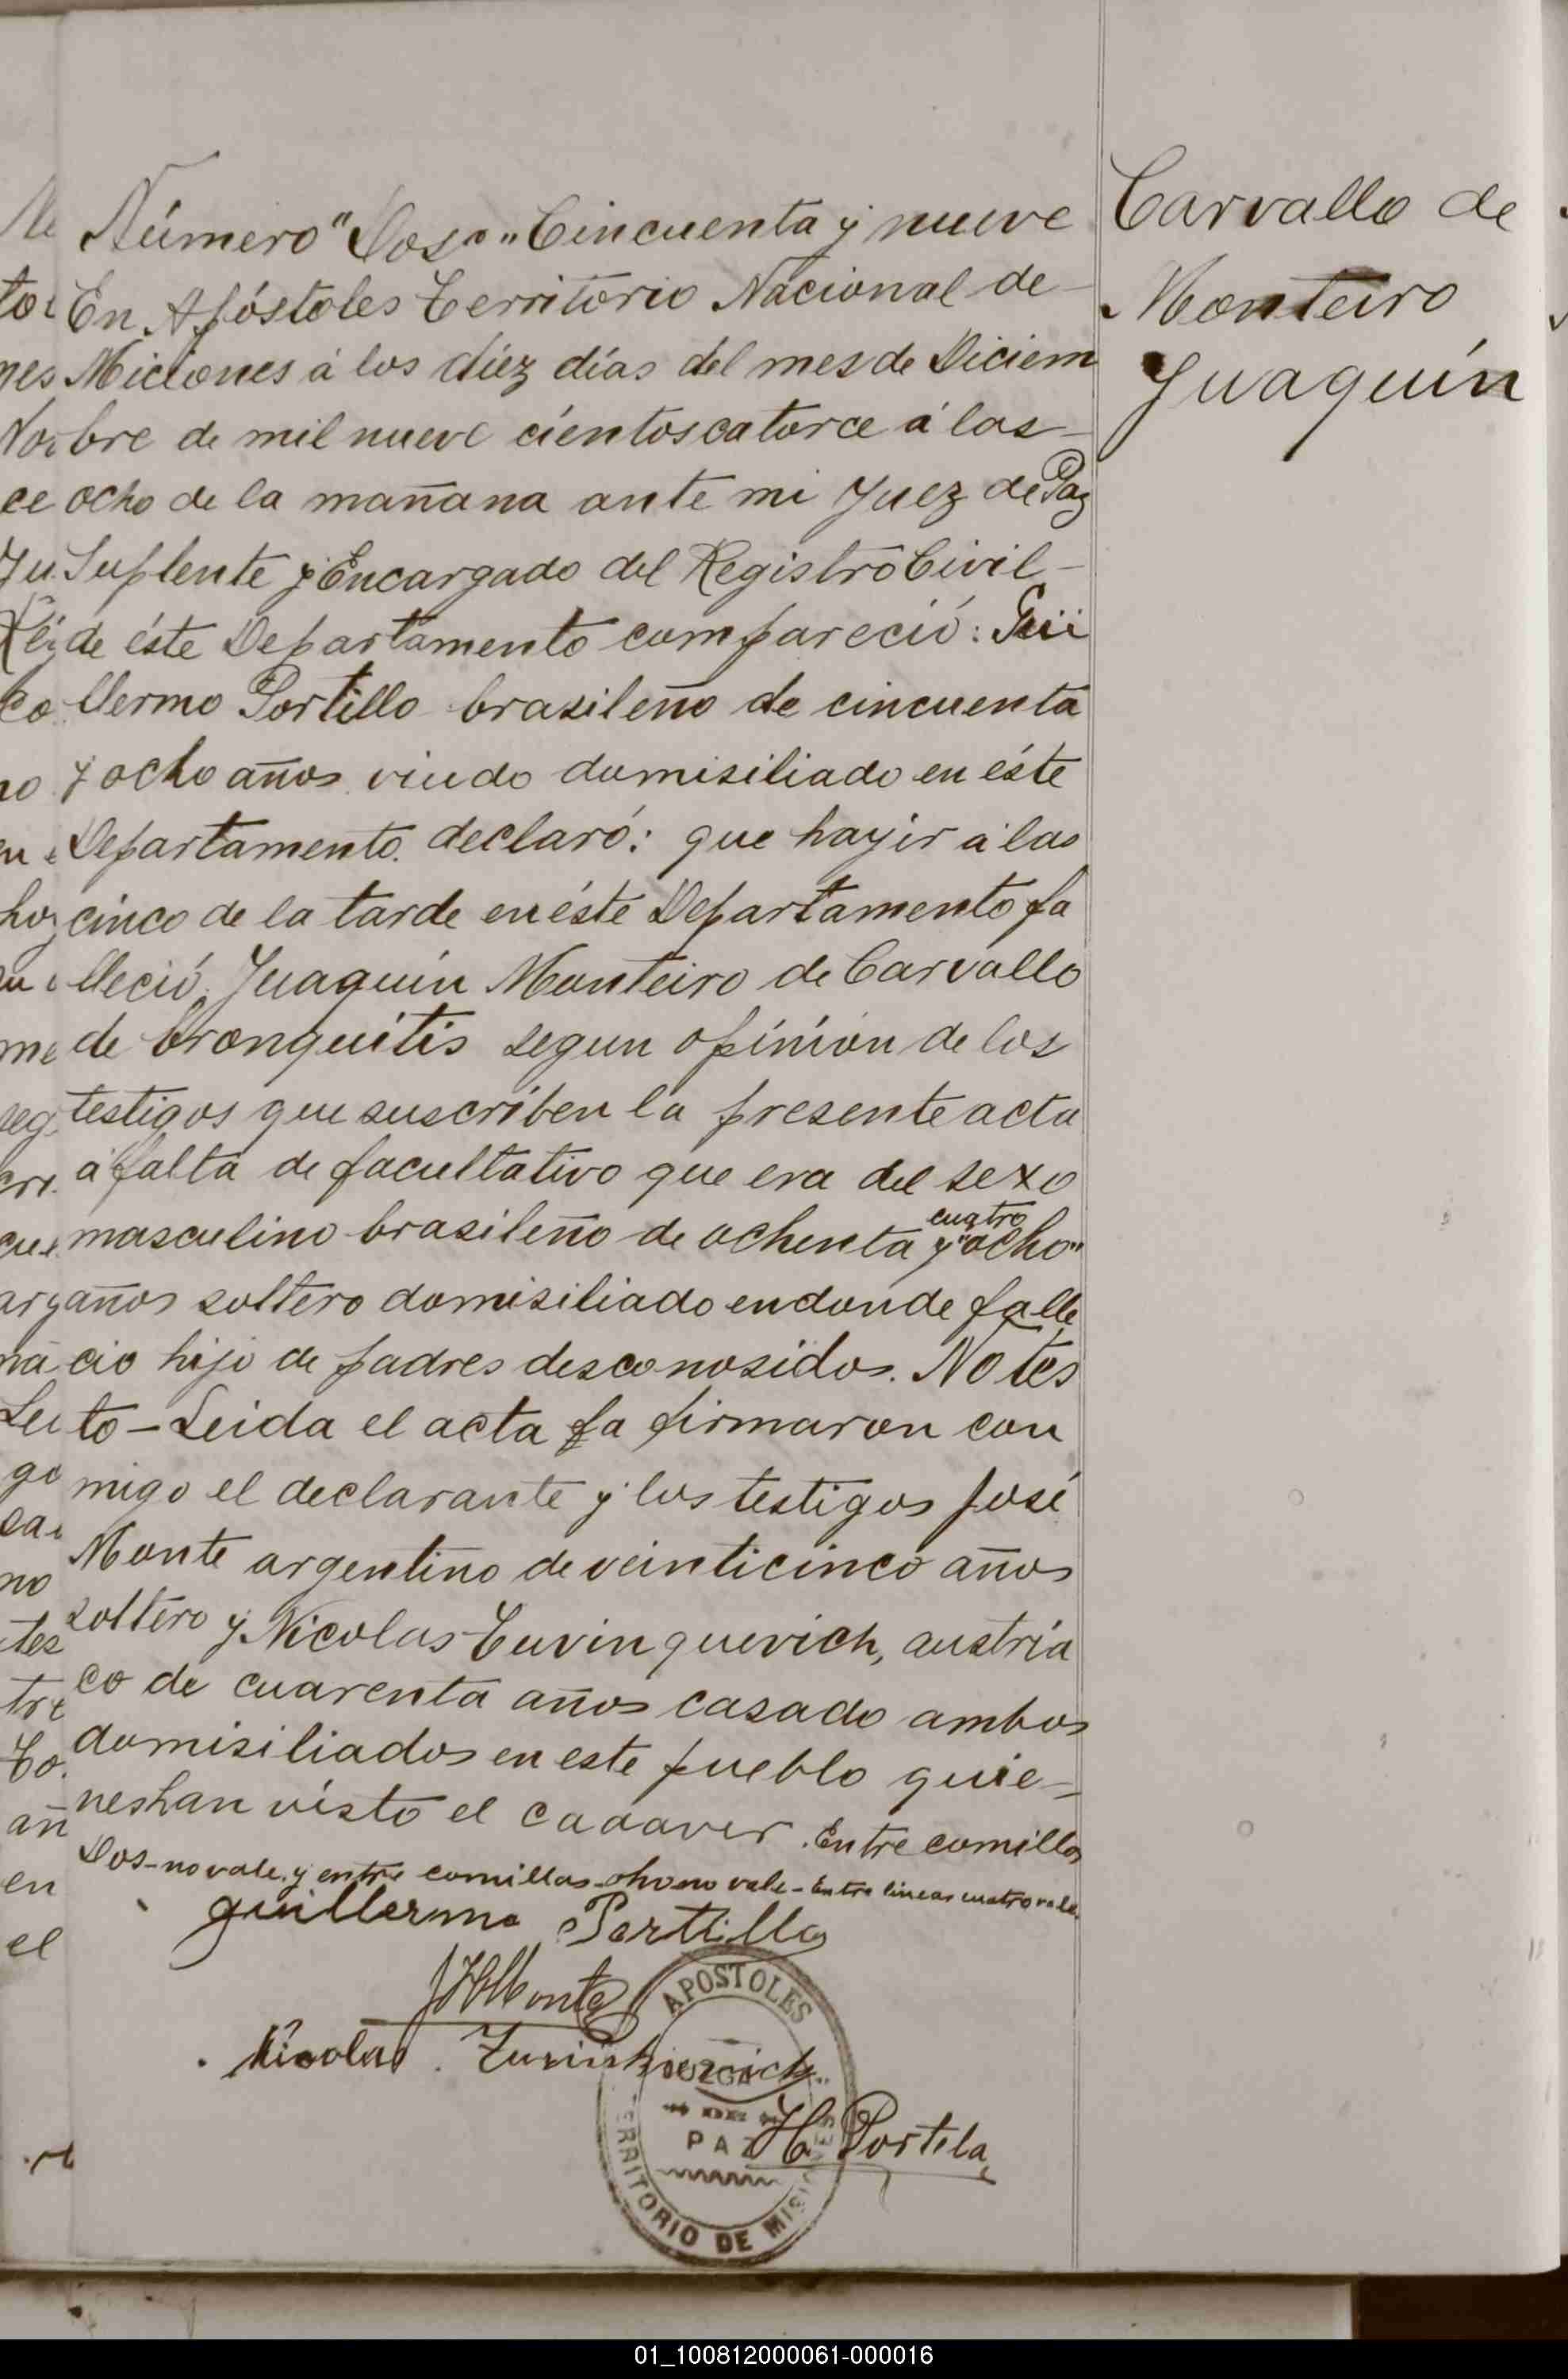 Carvallo de
Monteiro
Juaquín
Número "Dos" Cincuenta y nueve
En Apóstoles Territorio Nacional de
Miciones á los diez días del mes de Diciem
bre de mil nueve cientos catorce á las
ocho de la mañana ante mi Juez de Paz
Suplente y Encargado del Registro Civil
de éste Departamento compareció: Gui
llermo Portillo brasileño de cincuenta
y ocho años viudo domisiliado en éste
Departamento. declaró: que hayir á las
cinco de la tarde en éste Departamento fa
lleció Juaquín Monteiro de Carvallo
de bronquitis segun opinión de los
testigos que suscriben la presente acta
á falta de facultativo que era del sexo
masculino brasileño de ochenta y cuatro "ocho"
años soltero domisiliado en donde falle
cio hijo de padres desconosidos. No tes
to – Leida el acta la firmaron con
migo el declarante y los testigos José
Monte argentino de veinticinco años
soltero y Nicolas Tuvinquevich, austria
co de cuarenta años casado ambos
domisiliados en este pueblo quie-
nes han visto el cadaver. Entre comillas
Dos-no vale, y entre comillas-oho no vale-Entre lineas cuatro vale.
Guillermo Portillo
J H Monte
Nicolas
H. Portela
APOSTOLES
JUZGADO
DE
PAZ
TERRITORIO DE MISIONES
01_100812000061-000016